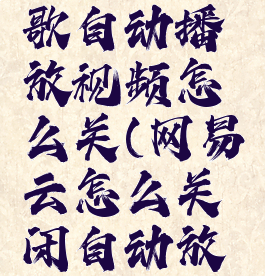 歌自动播
放视频怎
么关(网易
云怎么关
闭自动放